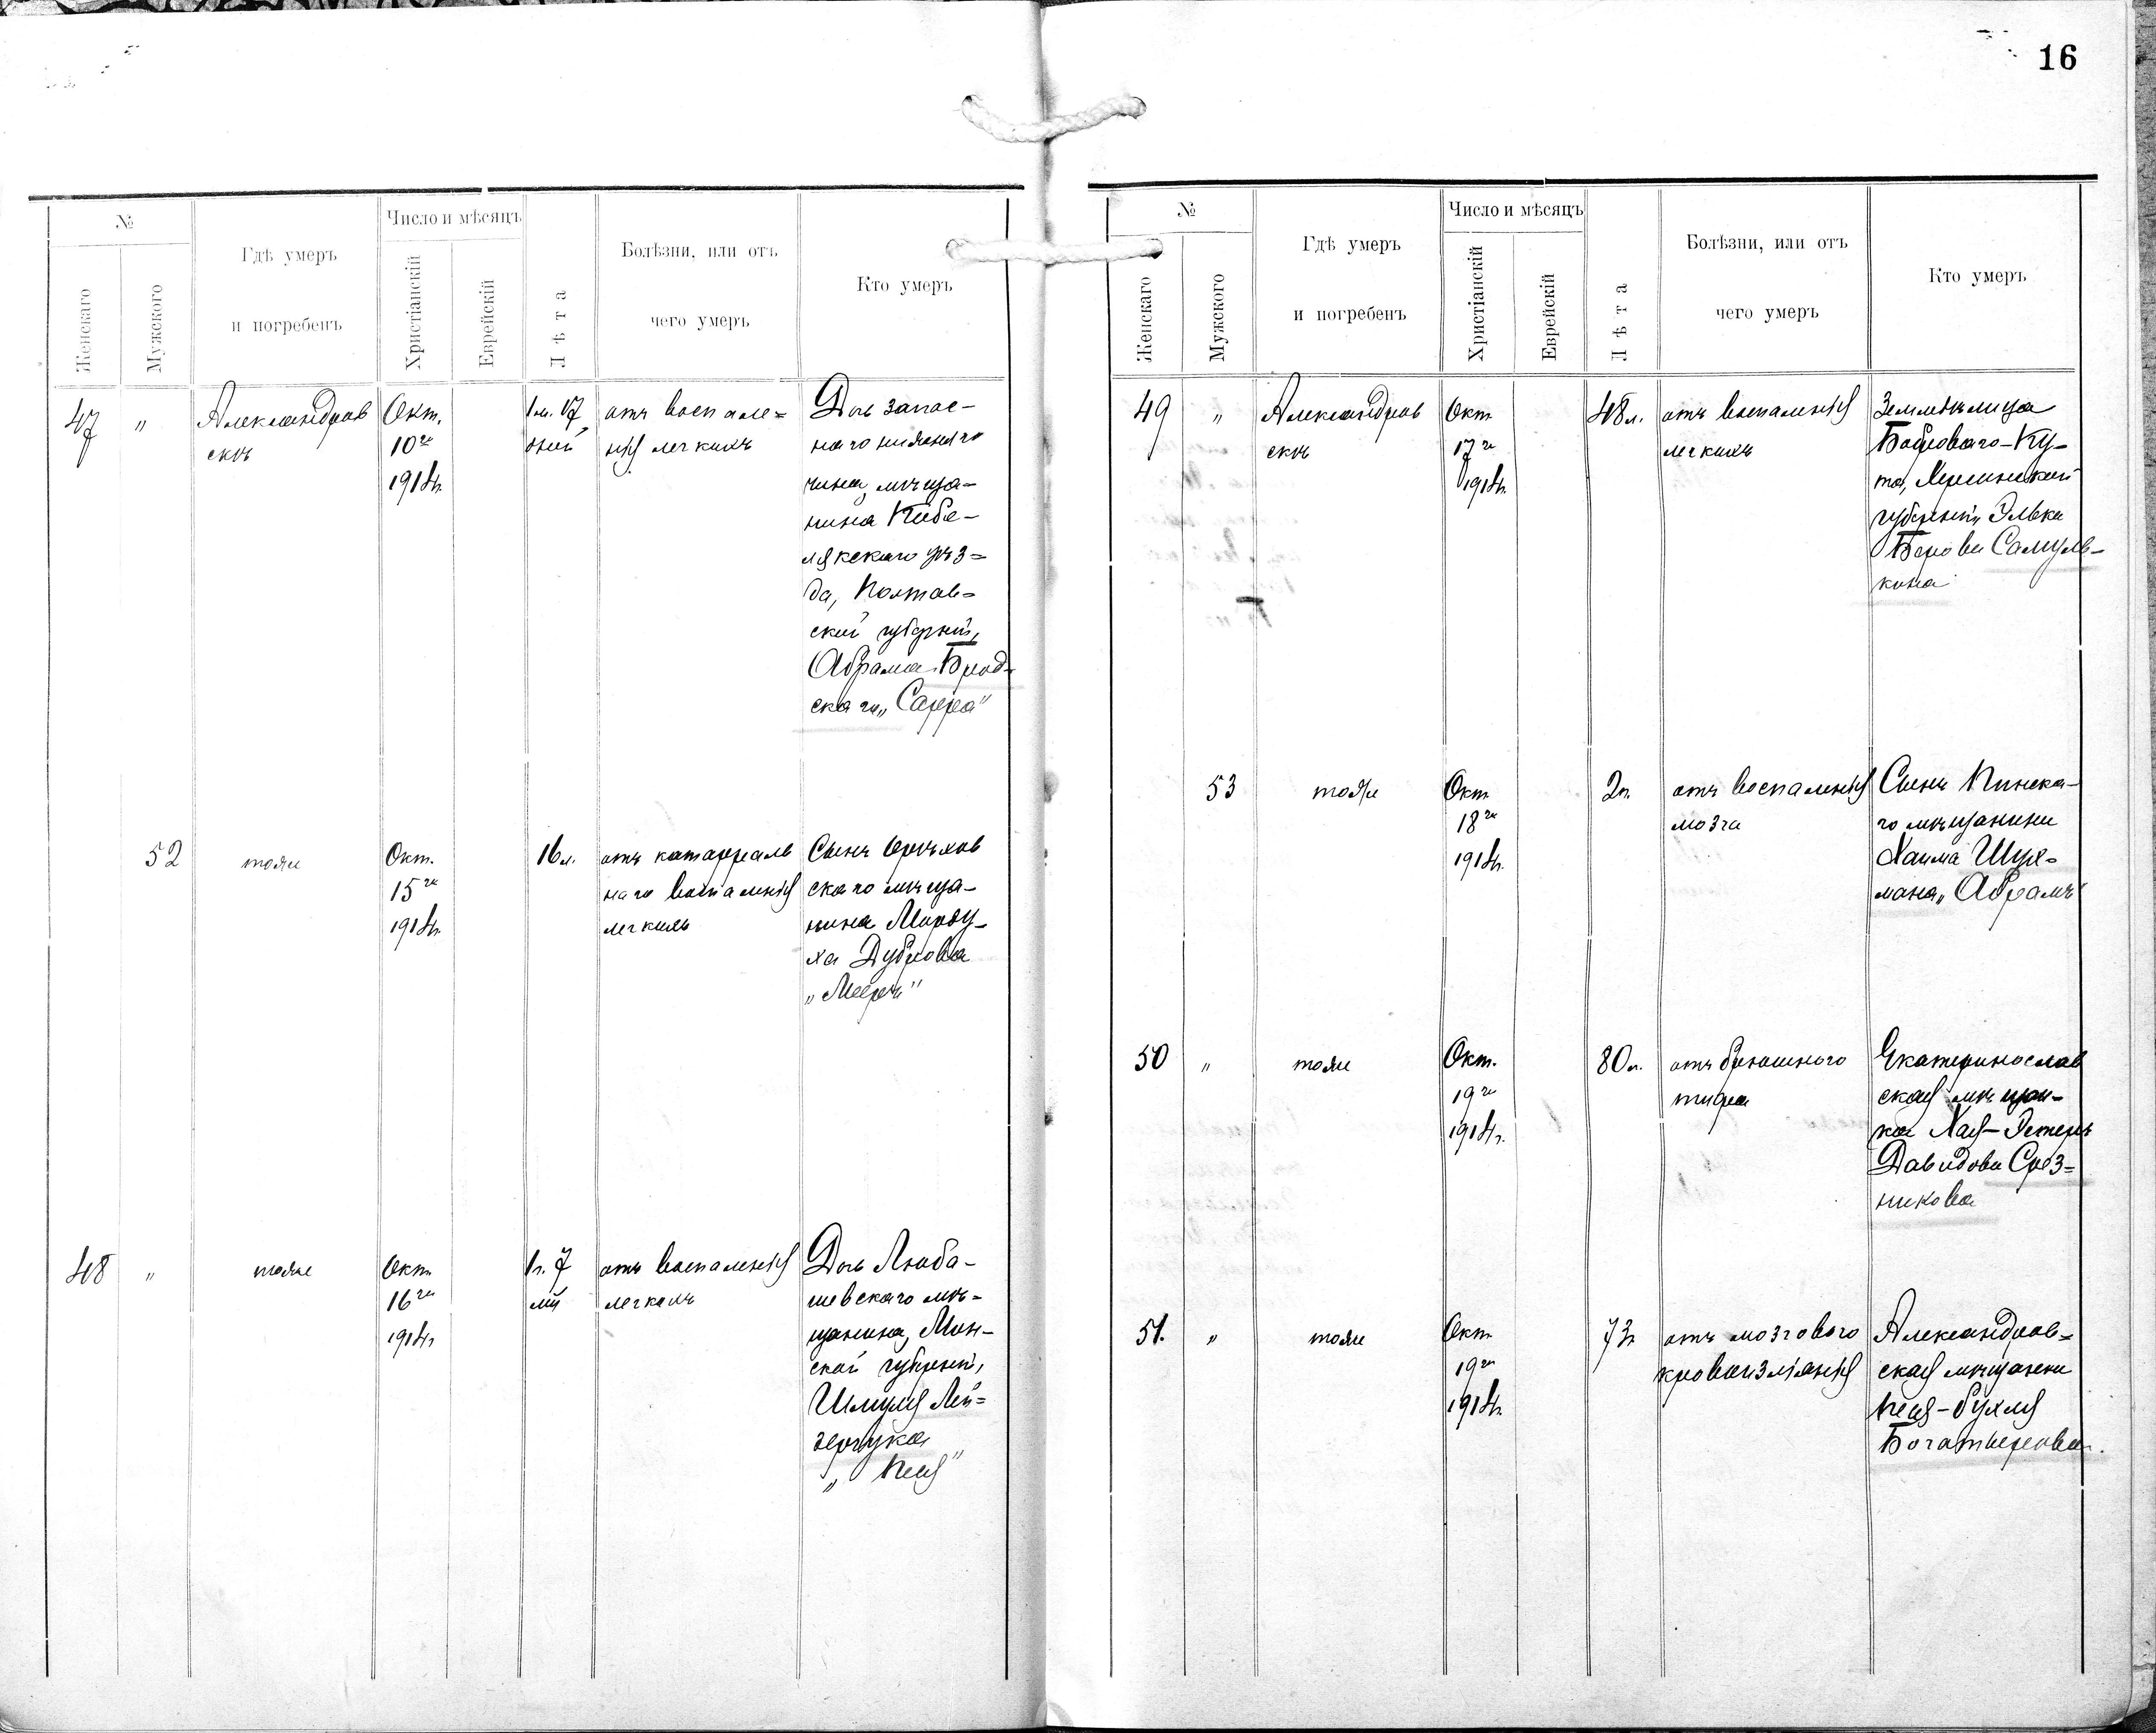 16
№
Женскаго
Мужского
Гдѣ умеръ
и погребенъ
Число и мѣсяцъ
Христіанскій
Еврейскій
Лѣта
Болѣзни, или отъ
чего умеръ
Кто умеръ
47 "
Александров
скъ
Окт.
10го
1914г.
1 м. 17
дней
отъ воспале=
нія легкихъ
Дочь запас-
наго нижняго
чина, мѣща-
нина Кобе-
лякскаго уѣз=
да, Полтав=
ской губерніи,
Абрама Брод-
скаго „Сарра"
52
тоже
Окт.
15го
1914г.
16 л.
отъ катарраль
наго воспаленія
легкихъ
Сынъ Орѣхов
скаго мѣща-
нина Морду-
ха Дуброва
„Мееръ"
48 "
тоже
Окт.
16го
1914г.
1 г. 7
мц
отъ воспаленія
легкихъ
Дочь Люба-
шевскаго мѣ-
щанина, Мин-
ской губерніи,
Шмуля Лей=
зерчука
„Песя"
№
Женскаго
Мужского
Гдѣ умеръ
и погребенъ
Число и мѣсяцъ
Христіанскій
Еврейскій
Лѣта
Болѣзни, или отъ
чего умеръ
Кто умеръ
49 "
Александров
скъ
Окт.
17го
1914г.
48 л.
отъ воспаленія
легкихъ
Землевлица
Боброваго-Ку-
та, Херсонской
губерніи Элька
Берова Самуль-
кина
53
тоже
Окт.
18го
1914г.
2 г.
отъ воспаленія
мозга
Сынъ Пинска-
го мѣщанина
Хаима Шух-
мана „Абрамъ"
50 "
тоже
Окт.
19го
1914г.
80 л.
отъ брюшного
тифа
Екатеринослав
ская мѣщан-
ка Хая-Эстеръ
Давидова Срез=
никова
51. "
тоже
Окт.
19го
1914г.
73 г.
отъ мозгового
кровоизліянія
Александров=
ская мѣщанка
Песя-Рухля
Богатырева.